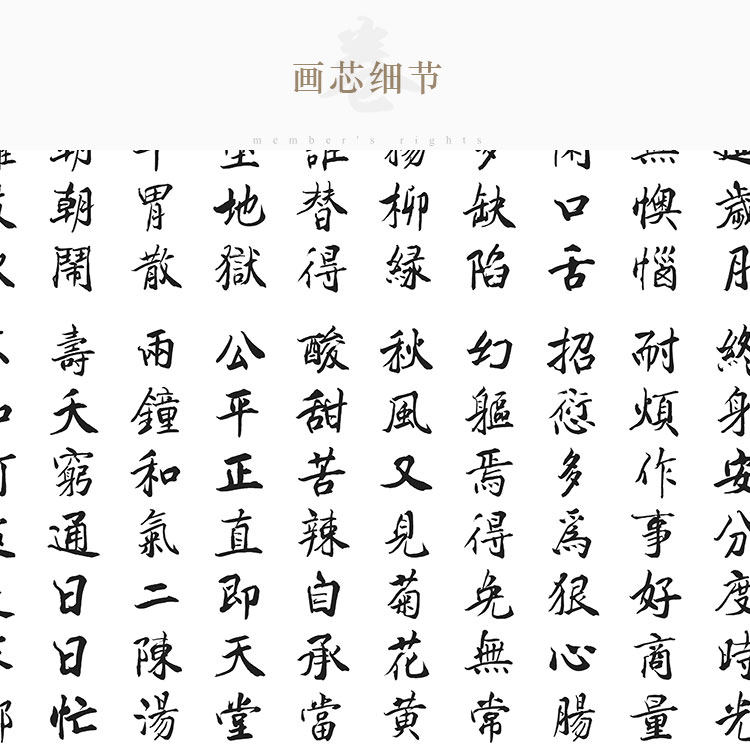 画芯细节
member's rights
歲月
終身安分度時光
無懊惱
耐煩作事好商量
口舌
招愆多爲狠心腸
多缺陷
幻軀焉得免無常
楊柳緣
秋風又見菊花黄
誰替得
酸甜苦辣自承當
地獄
公平正直即天堂
胃散
兩鐘和氣二陳湯
朝朝鬧
壽夭窮通日日忙